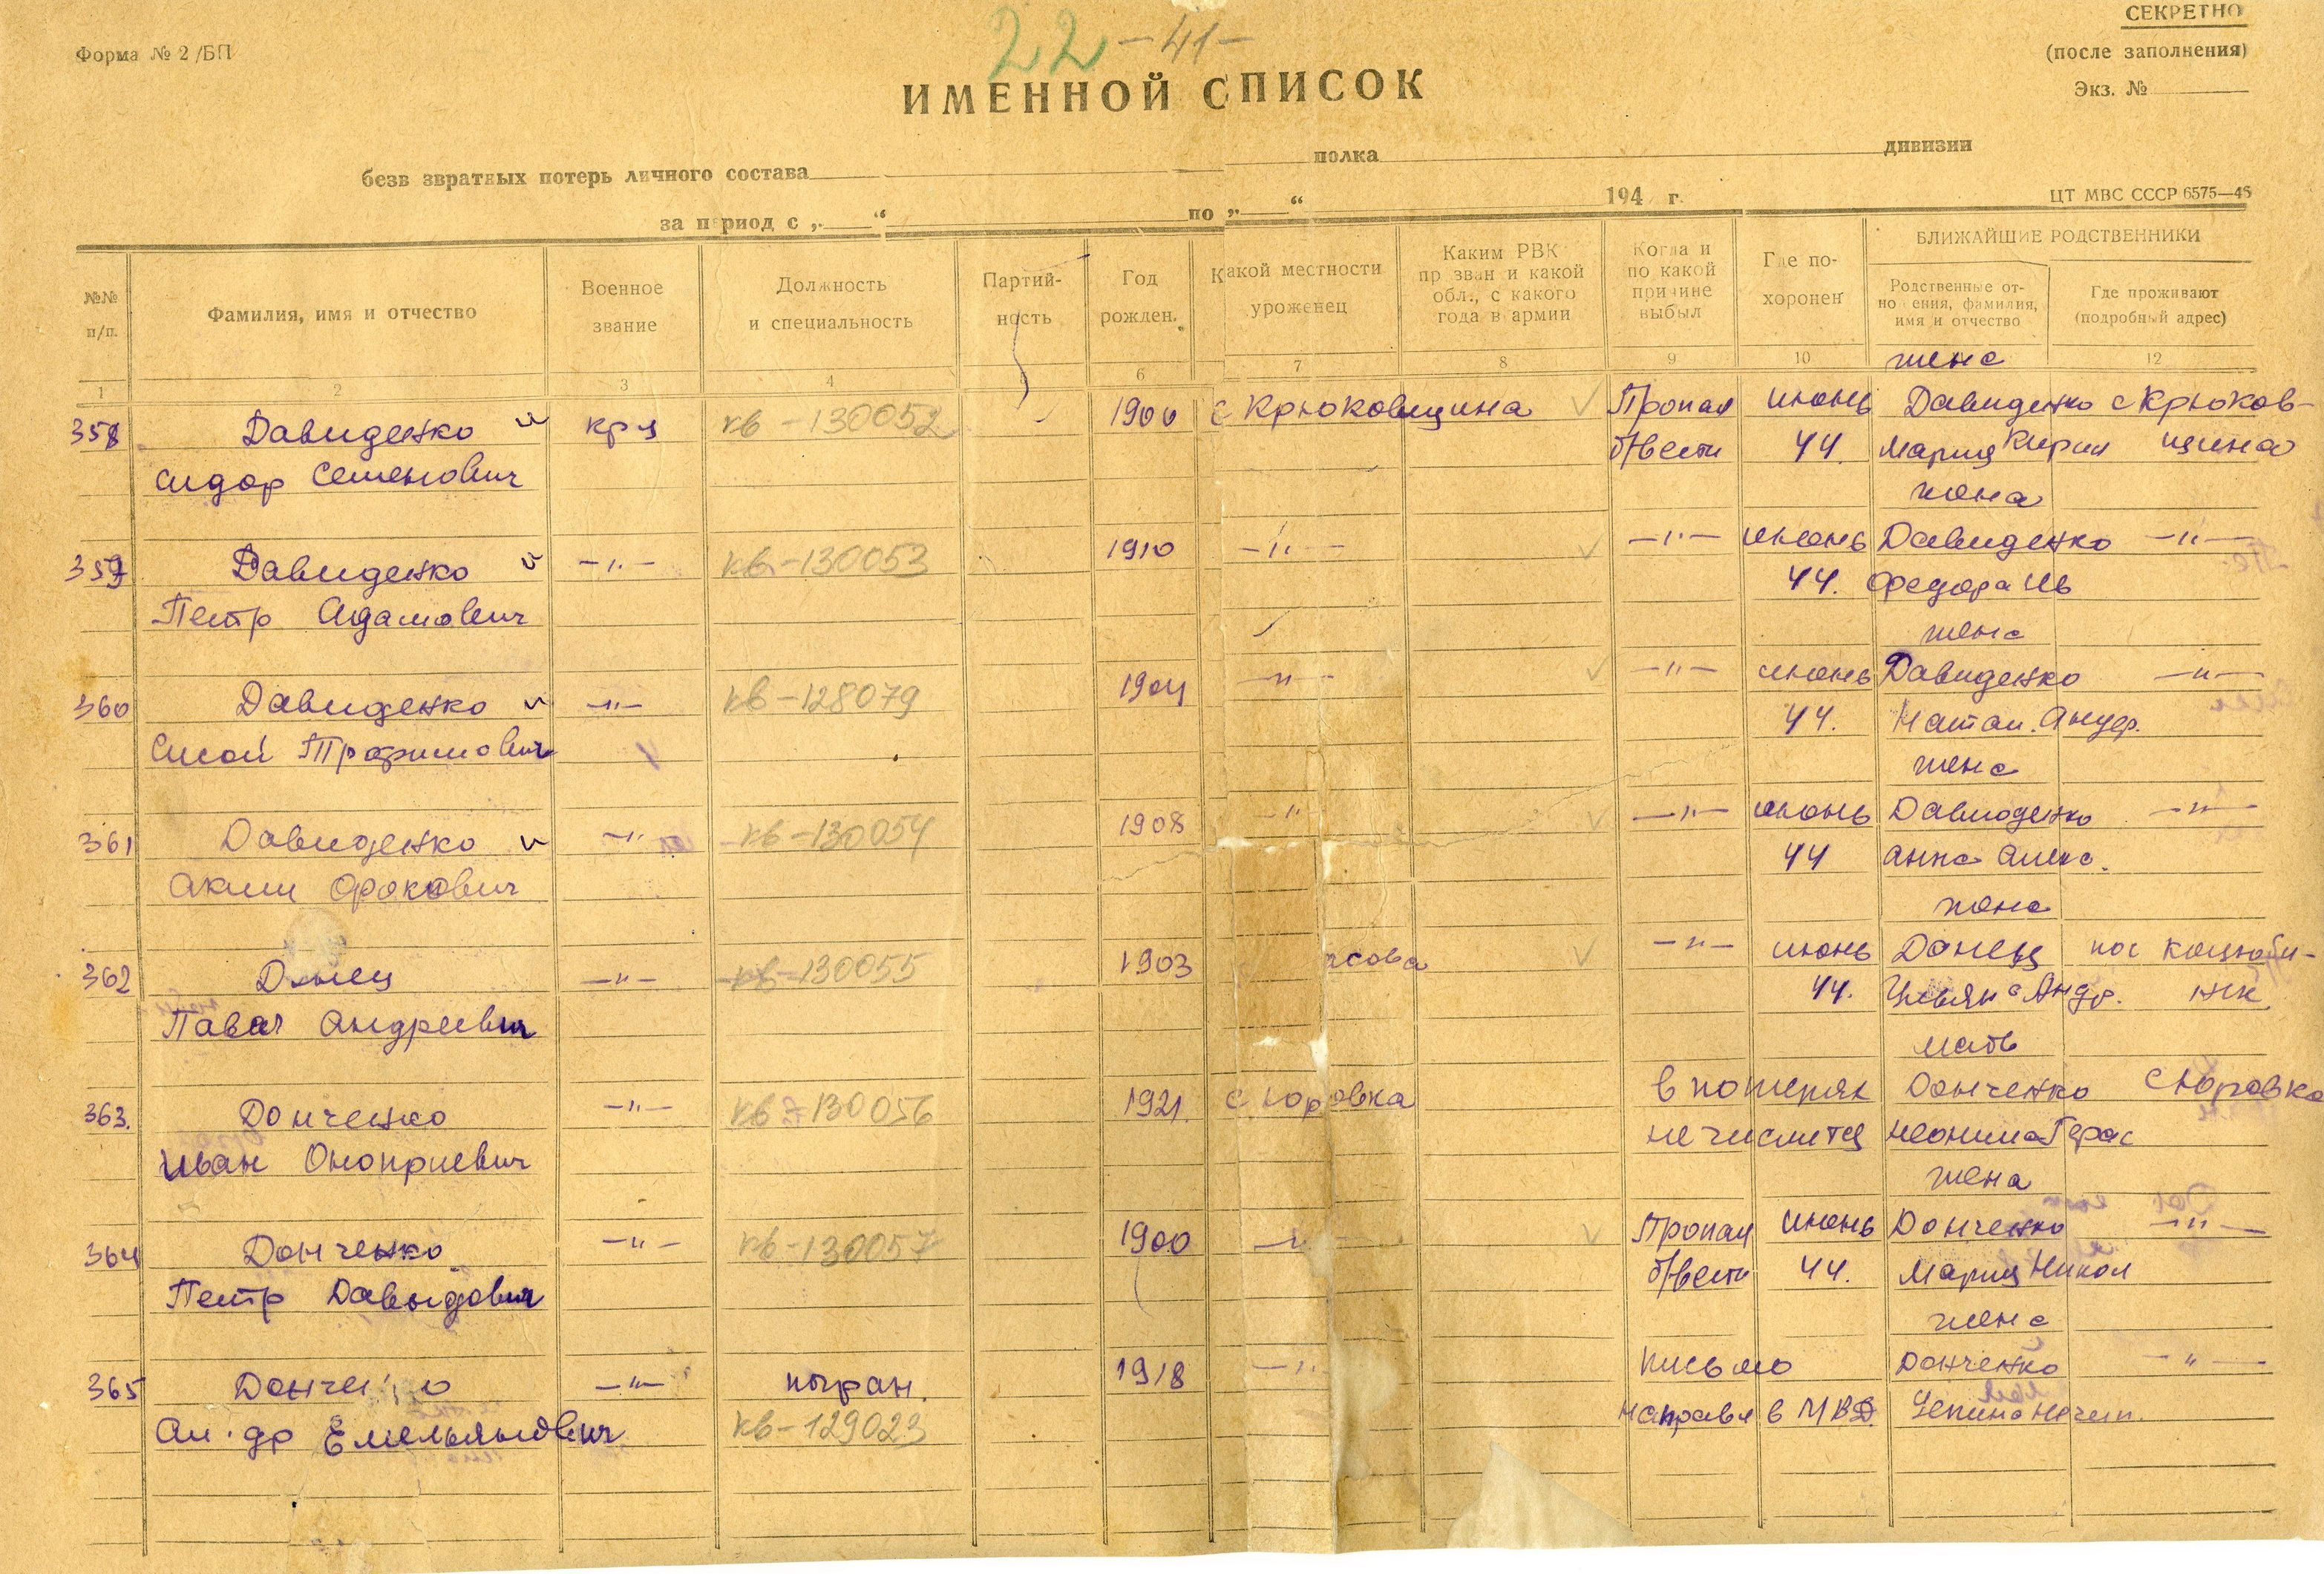 22 -41-
СЕКРЕТНО
Форма № 2/БП
(после заполнения)
Экз. №
ИМЕННОЙ СПИСОК
безв звратных потерь личного состава полка дивизии
за период с „ “ по „ “ 194 г.
ЦТ МВС СССР 6575—46
№№ п/п.
Фамилия, имя и отчество
Военное звание
Должность и специальность
Партий- ность
Год рожден.
Какой местности уроженец
Каким РВК пр зван и какой обл., с какого года в армии
Когда и по какой причине выбыл
Где по- хоронен
БЛИЖАЙШИЕ РОДСТВЕННИКИ
Родственные от- но ения, фамилия, имя и отчество
Где проживают (подробный адрес)
1 2 3 4 5 6 7 8 9 10 12
жена
358 Давиденко кр-ц кв-130052 1900 с Крюковщина Пропал июнь Давиденко с Крюков-
Сидор Семенович б/вести 44. Мария Кирил щина
жена
359 Давиденко -"- кв-130053 1910 -"- -"- июнь Давиденко -"-
Петр Адамович 44. Федора Ив
жена
360 Давиденко -"- кв-128079 1904 -"- -"- июнь Давиденко -"-
Сисой Трофимович 44. Натал. Андр.
жена
361 Давиденко -"- кв-130054 1908 -"- -"- июнь Давиденко -"-
Аким Фокович 44 Анна Алекс.
жена
362 Донец -"- кв-130055 1903 асова -"- июнь Донец пос Коцюбин-
Павел Андреевич 44. Ульяна Андр. ск
мать
363. Донченко -"- кв-130056 1921. с Юровка в потерях Донченко с Юровка
Иван Оноприевич не числится Неонила Герас
жена
364 Донченко -"- кв-130057 1900 -"- Пропал июнь Донченко -"-
Петр Давыдович б/вести 44. Мария Никол
жена
365 Донче о -"- погран. 1918 -"- письмо Донченко -"-
др Емельянович кв-129023 направл в МВД